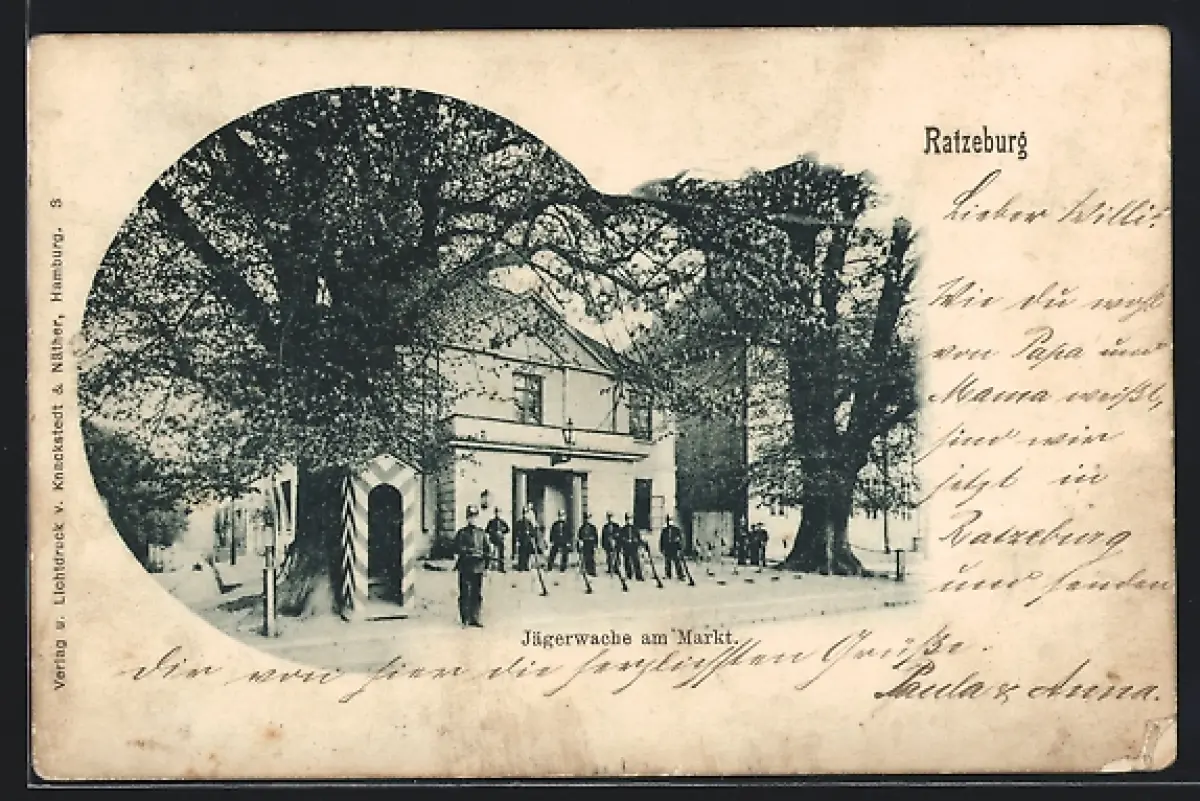 Ratzeburg
Lieber Willi!
Wie du wohl
von Papa und
Mama weißt,
sind wir
jetzt in
Ratzeburg
und senden
dir von hier die herzlichsten Grüße.
Paula & Anna.
Jägerwache am Markt.
Verlag u. Lichtdruck v. Knackstedt & Näther, Hamburg. S